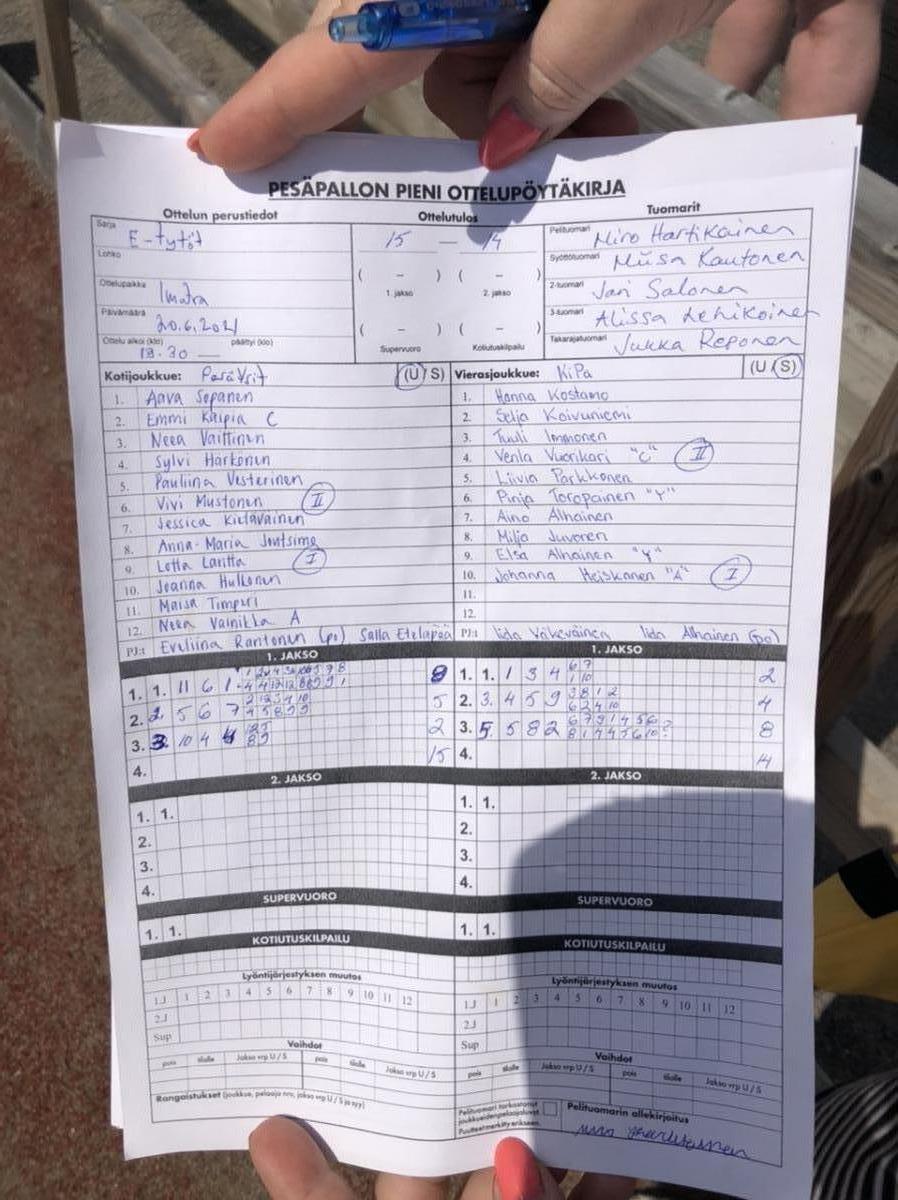 PESÄPALLON PIENI OTTELUPÖYTÄKIRJA
Ottelun perustiedot Ottelutulos Tuomarit
Sarja E-tytöt 15 — 14 Pelituomari Miro Hartikainen
Lohko Syöttötuomari Miisa Kautonen
Ottelupaikka Imatra ( – ) ( – ) 2-tuomari Jari Salonen
1. jakso 2. jakso
Päivämäärä 20.6.2021 ( – ) ( – ) 3-tuomari Alissa Lehikoinen
Ottelu alkoi (klo) 13.30 — päättyi (klo) Supervuoro Kotiutuskilpailu Takarajatuomari Jukka Reponen
Kotijoukkue: PesäYsit (U/S) Vierasjoukkue: KiPa (U/S)
1. Aava Sopanen 1. Hanna Kostamo
2. Emmi Kaipia C 2. Selja Koivuniemi
3. Neea Vaittinen 3. Tuuli Immonen
4. Sylvi Härkönen 4. Venla Vuorikari "C" II
5. Pauliina Vesterinen 5. Liivia Parkkonen
6. Vivi Mustonen II 6. Pinja Toropainen "Y"
7. Jessica Kieläväinen 7. Aino Alhainen
8. Anna-Maria Jontsimo 8. Milja Juvoren
9. Lotta Laritta I 9. Elsa Alhainen "Y"
10. Joanna Hulkonen 10. Johanna Heiskanen "A" I
11. Maisa Timperi 11.
12. Neea Vainikka A 12.
PJ:t Eveliina Rantonen (po) Salla Eteläpää PJ:t Iida Väkeväinen Iida Alhainen (po)
1. JAKSO 1. JAKSO
1. 1. 11 6 1 8 1. 1. 1 3 4 2
2. 2. 5 6 7 5 2. 3. 4 5 9 4
3. 3. 10 4 4 2 3. 5. 5 8 2 8
4. 15 4. 14
2. JAKSO 2. JAKSO
1. 1. 1. 1.
2. 2.
3. 3.
4. 4.
SUPERVUORO SUPERVUORO
1. 1. 1. 1.
KOTIUTUSKILPAILU KOTIUTUSKILPAILU
Lyöntijärjestyksen muutos Lyöntijärjestyksen muutos
1.J 1 2 3 4 5 6 7 8 9 10 11 12 1.J 1 2 3 4 5 6 7 8 9 10 11 12
2.J 2.J
Sup Sup
Vaihdot Vaihdot
pois tilalle Jakso vrp U / S pois tilalle Jakso vrp U / S pois tilalle Jakso vrp U / S pois tilalle Jakso vrp U / S
Rangaistukset (joukkue, pelaaja nro, jakso vrp U / S ja syy)
Pelituomari tarkastanut joukkueiden pelaajaluvat. Puutteet merkitty erikseen.
Pelituomarin allekirjoitus